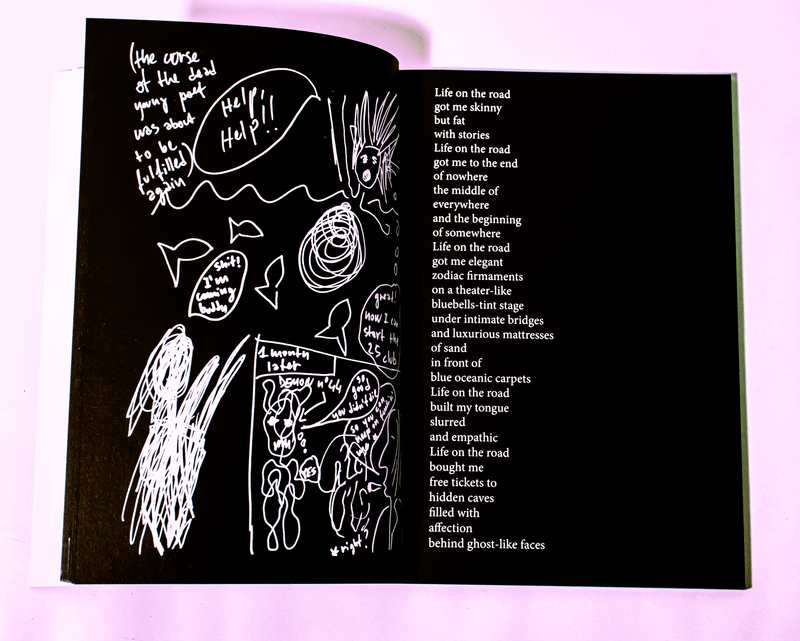 (the curse
of the dead
young poet
was about
to be
fulfilled)
again
Help!
Help!!
shit!
I'm
coming
buddy
great!
now I can
start the
25 club
1 month
later
DEMON nº44
so
good
you didn't die
so you can
YES
* right?
Life on the road
got me skinny
but fat
with stories
Life on the road
got me to the end
of nowhere
the middle of
everywhere
and the beginning
of somewhere
Life on the road
got me elegant
zodiac firmaments
on a theater-like
bluebells-tint stage
under intimate bridges
and luxurious mattresses
of sand
in front of
blue oceanic carpets
Life on the road
built my tongue
slurred
and empathic
Life on the road
bought me
free tickets to
hidden caves
filled with
affection
behind ghost-like faces